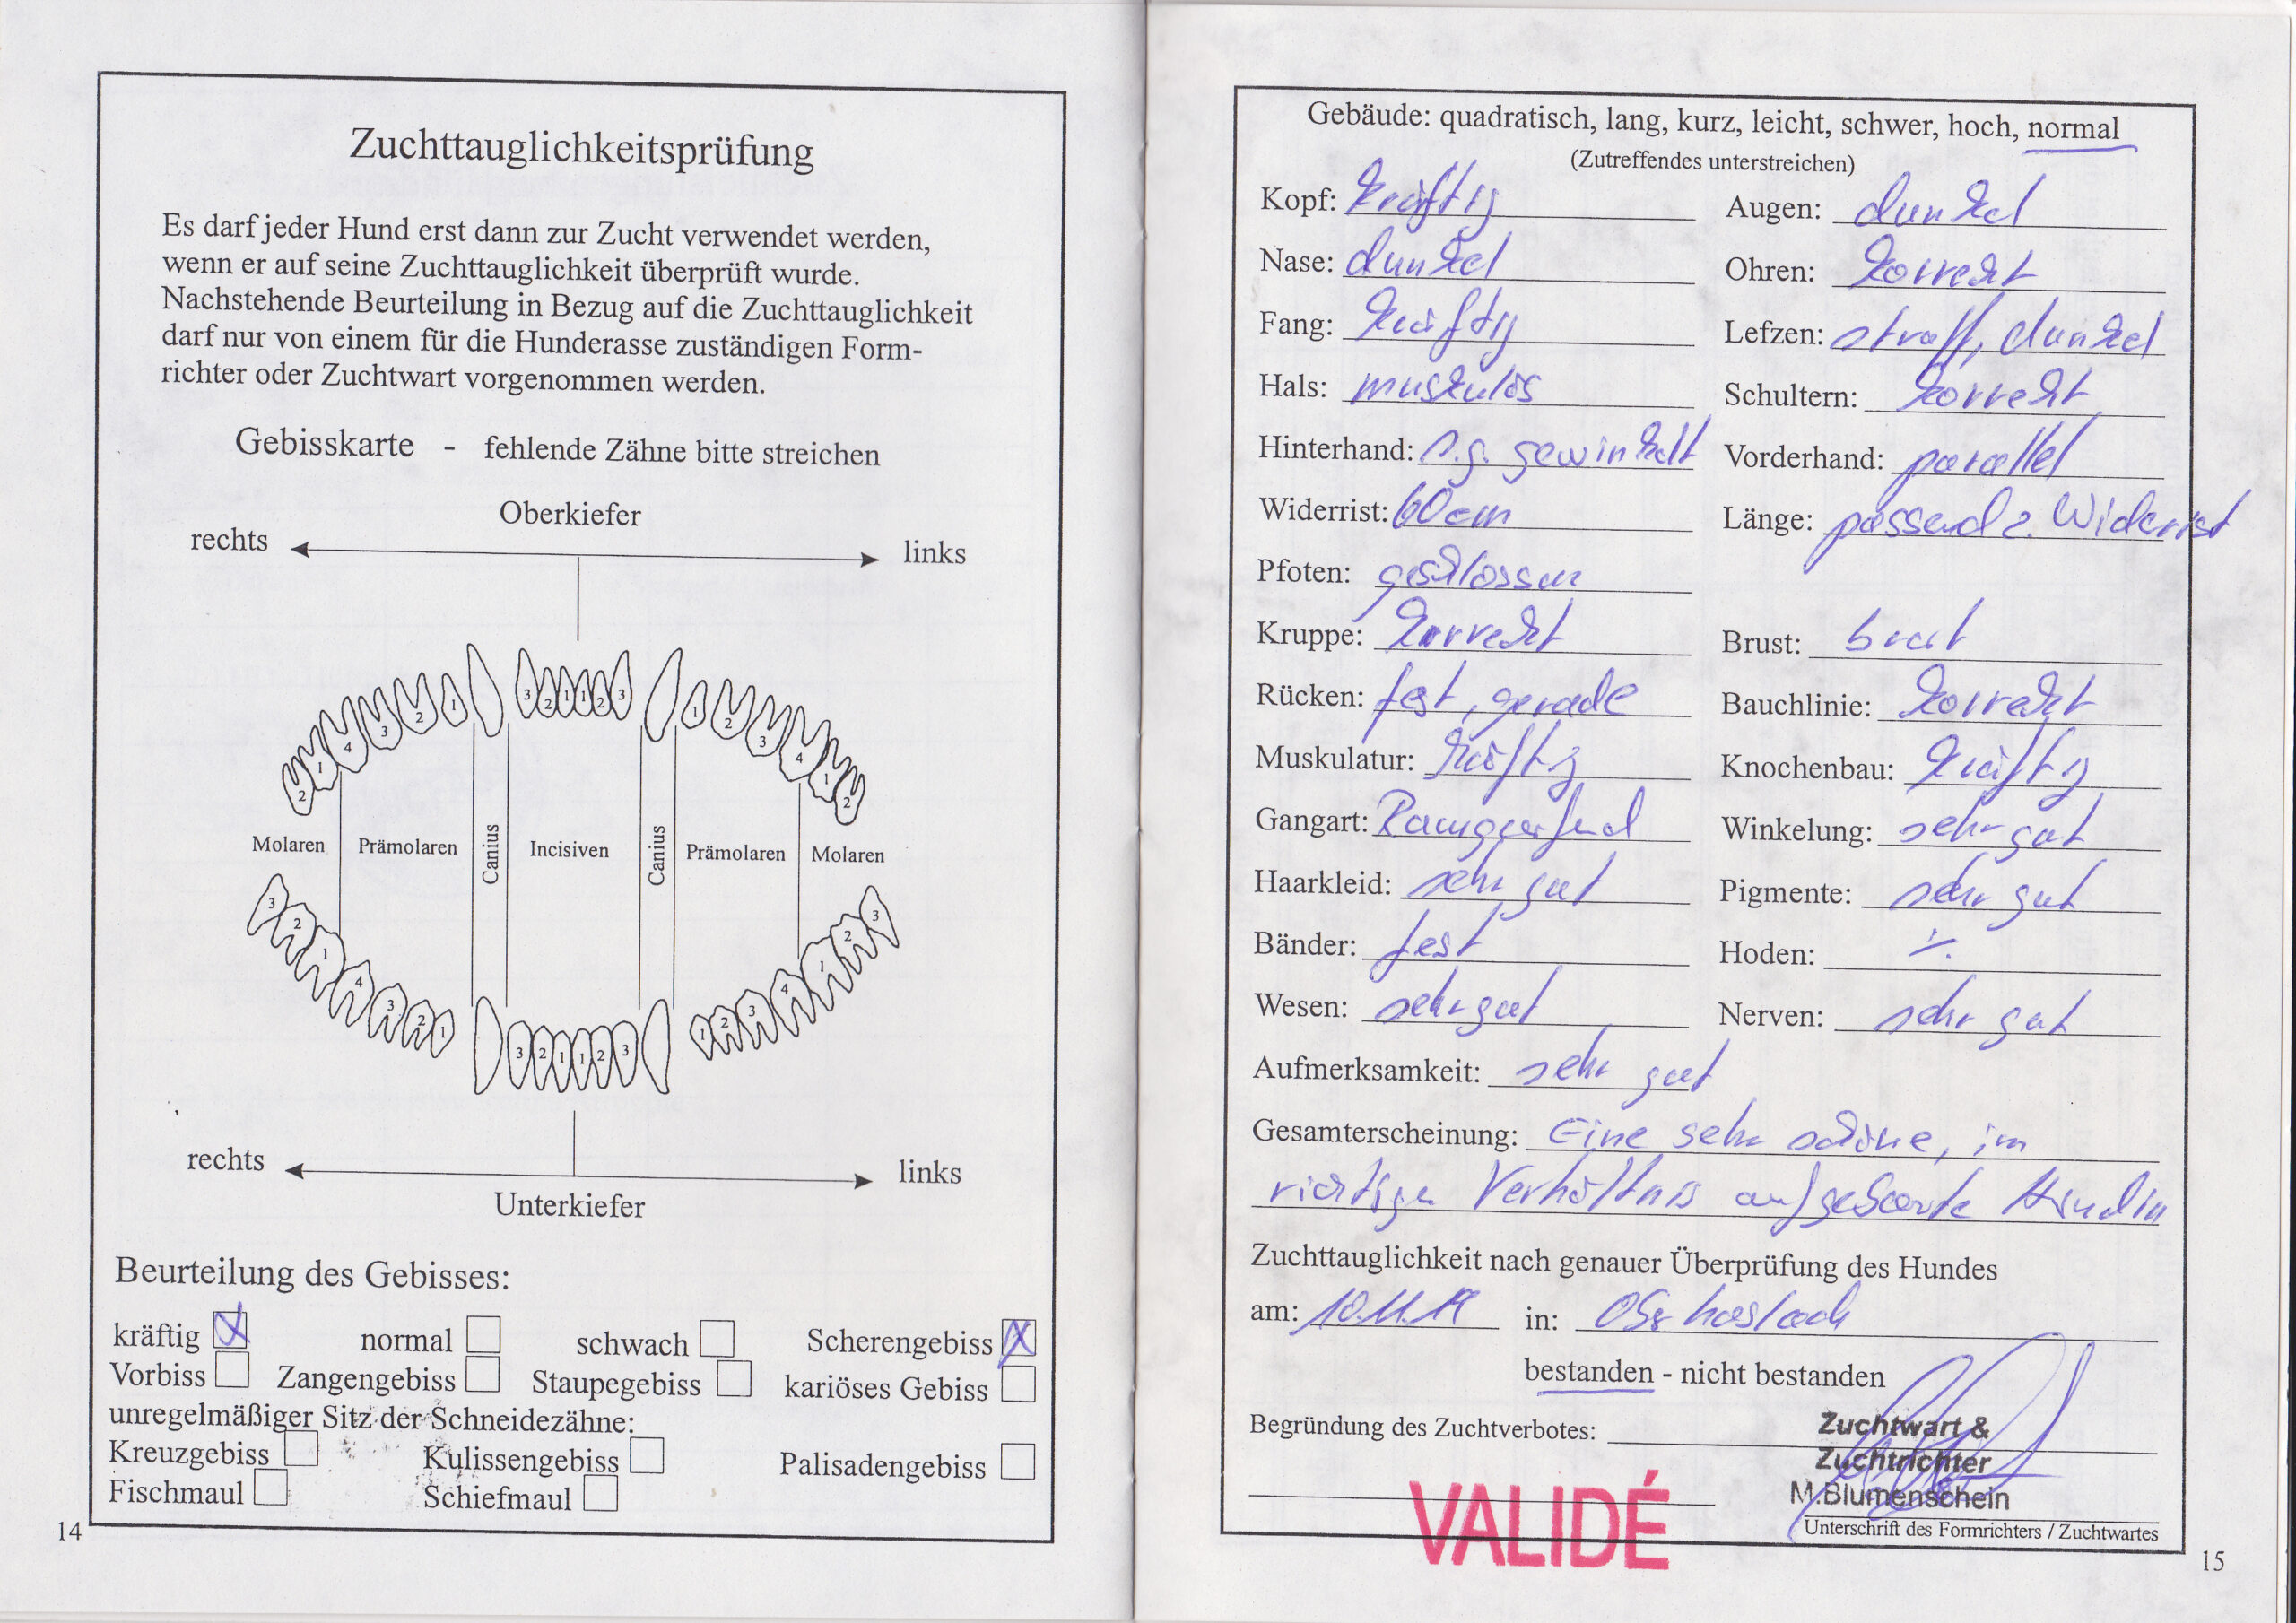 Zuchttauglichkeitsprüfung
Es darf jeder Hund erst dann zur Zucht verwendet werden,
wenn er auf seine Zuchttauglichkeit überprüft wurde.
Nachstehende Beurteilung in Bezug auf die Zuchttauglichkeit
darf nur von einem für die Hunderasse zuständigen Form-
richter oder Zuchtwart vorgenommen werden.
Gebisskarte - fehlende Zähne bitte streichen
Oberkiefer
rechts links
2 1 4 3 2 1 3 2 1 1 2 3 1 2 3 4 1 2
Molaren Prämolaren Canius Incisiven Canius Prämolaren Molaren
3 2 1 4 3 2 1 3 2 1 1 2 3 1 2 3 4 1 2 3
rechts links
Unterkiefer
Beurteilung des Gebisses:
kräftig normal schwach Scherengebiss
Vorbiss Zangengebiss Staupegebiss kariöses Gebiss
unregelmäßiger Sitz der Schneidezähne:
Kreuzgebiss Kulissengebiss Palisadengebiss
Fischmaul Schiefmaul
14
Gebäude: quadratisch, lang, kurz, leicht, schwer, hoch, normal
(Zutreffendes unterstreichen)
Kopf: kräftig Augen: dunkel
Nase: dunkel Ohren: korrekt
Fang: kräftig Lefzen: straff, dunkel
Hals: muskulös Schultern: korrekt
Hinterhand: s.g. gewinkelt Vorderhand: parallel
Widerrist: 60cm Länge: passend z. Widerrist
Pfoten: geschlossen
Kruppe: korrekt Brust: breit
Rücken: fest, gerade Bauchlinie: korrekt
Muskulatur: kräftig Knochenbau: kräftig
Gangart: Raumgreifend Winkelung: sehr gut
Haarkleid: sehr gut Pigmente: sehr gut
Bänder: fest Hoden: ·/.
Wesen: sehr gut Nerven: sehr gut
Aufmerksamkeit: sehr gut
Gesamterscheinung: Eine sehr schöne, im
richtigen Verhältnis aufgebaute Hündin
Zuchttauglichkeit nach genauer Überprüfung des Hundes
am: 10.11.19 in:
bestanden - nicht bestanden
Begründung des Zuchtverbotes:
Zuchtwart &
Zuchtrichter
M.Blumenschein
Unterschrift des Formrichters / Zuchtwartes
VALIDÉ
15